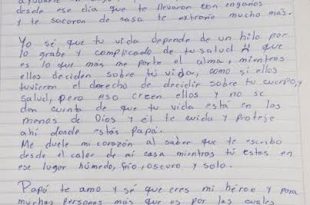 desde ese dia que te llevaron con engaños
y te sacaron de casa te extraño mucho más.
Yo sé que tu vida depende de un hilo por
lo grabe y complicado de tu salud y que
es lo que más me parte el alma, mientras
ellos deciden sobre tu vida, como si ellos
tuvieran el derecho de decidir sobre tu cuerpo y
salud, pero eso creen ellos y no se
dan cuenta de que tu vida está en las
manos de Dios y él te cuida y protege
ahí donde estás Papá.
Me duele mi corazón al saber que te escribo
desde el calor de mi casa mientras tú estas en
ese lugar húmedo, frío, oscuro y solo.
Papá te amo y sé que eres mi héroe y para
muchas personas más que es por las cuales